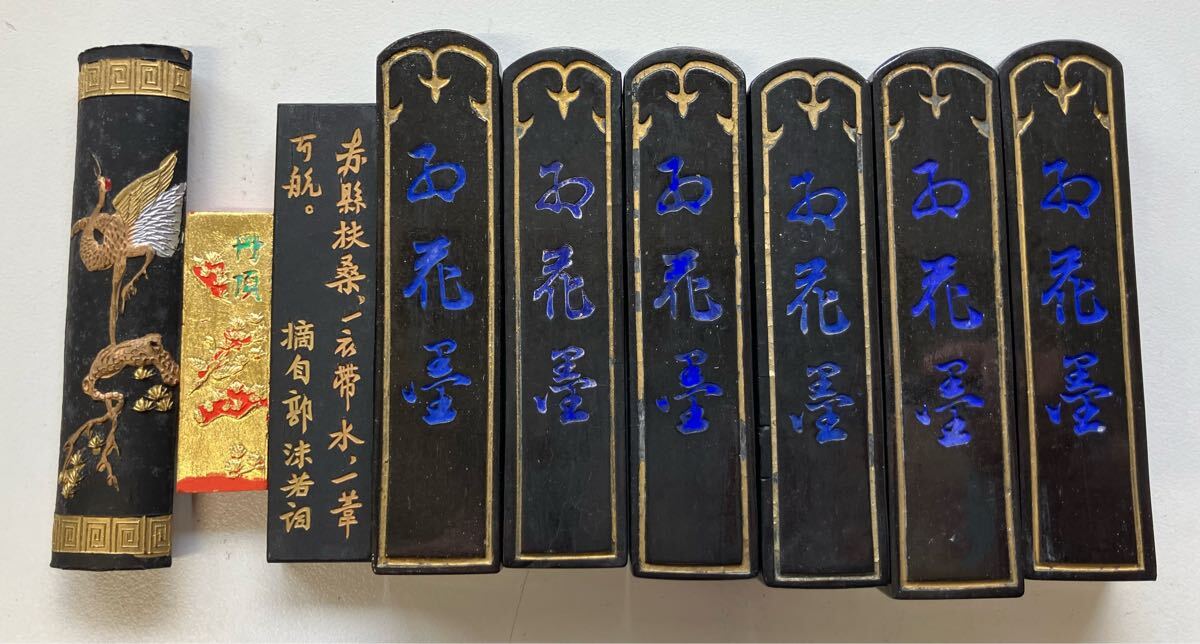 丹頂
赤縣扶桑，一衣帶水，一葦
可航。 摘自郭沫若词
紅花墨
紅花墨
紅花墨
紅花墨
紅花墨
紅花墨